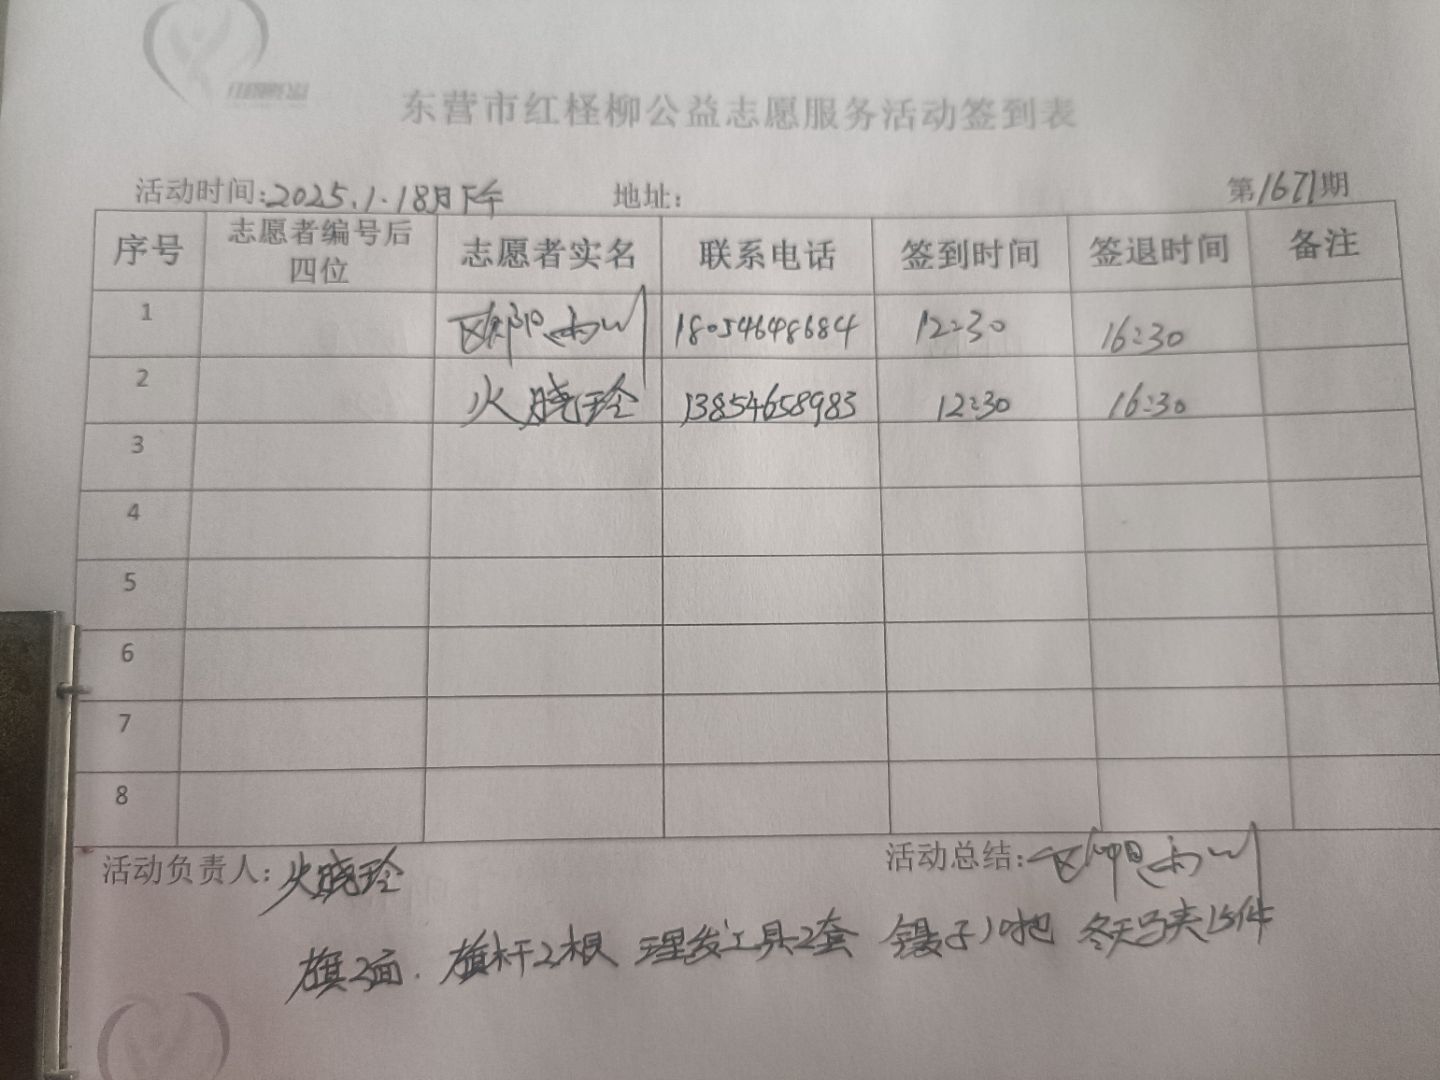 东营市红柽柳公益志愿服务活动签到表
活动时间:2025.1.18月下午 地址: 第1671期
序号 志愿者编号后四位 志愿者实名 联系电话 签到时间 签退时间 备注
1 欧阳 18054648684 12:30 16:30
2 火晓玲 13854658983 12:30 16:30
3
4
5
6
7
8
活动负责人: 火晓玲 活动总结: 欧阳
旗2面. 旗杆2根 理发工具2套 镊子10把 冬天马夹15件